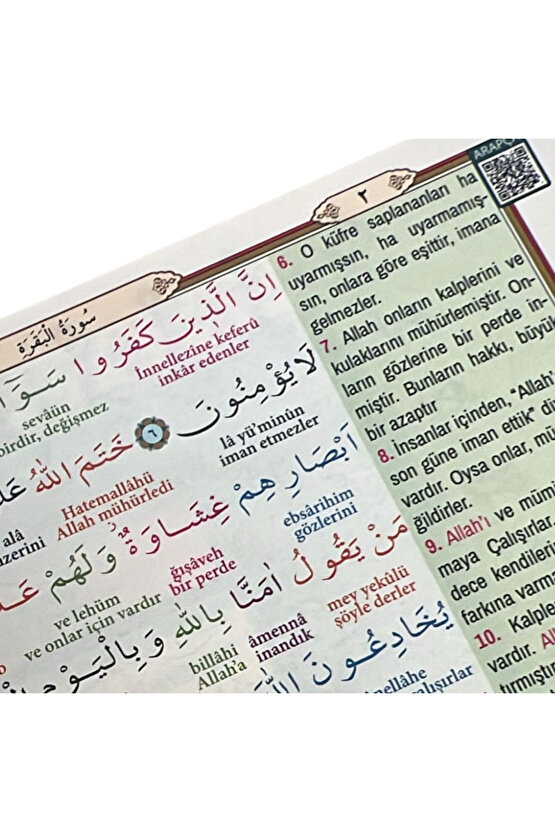 ARAPÇ
٢
سُورَةُ الْبَقَرَةِ
اِنَّ الَّذٖينَ كَفَرُوا سَوَٓا
İnnellezine keferû
inkâr edenler
sevâün
birdir, değişmez
لَا يُؤْمِنُونَ ٦ خَتَمَ اللّٰهُ عَلٰ
lâ yü'minûn
iman etmezler
Hatemallâhü
Allah mühürledi
alâ
üzerini
اَبْصَارِهِمْ غِشَاوَةٌ وَلَهُمْ عَذَ
ebsârihim
gözlerini
ğışâveh
bir perde
ve lehüm
ve onlar için vardır
مَنْ يَقُولُ اٰمَنَّا بِاللّٰهِ وَبِالْيَوْمِ
mey yekûlü
şöyle derler
âmennâ
inandık
billâhi
Allah'a
يُخَادِعُونَ اللّٰهَ
nellahe
çalışırlar
6. O küfre saplananları ha
uyarmışsın, ha uyarmamış-
sın, onlara göre eşittir, imana
gelmezler.
7. Allah onların kalplerini ve
kulaklarını mühürlemiştir. On-
ların gözlerine bir perde in-
miştir. Bunların hakkı, büyü
bir azaptır
8. İnsanlar içinden, "Allah'
son güne iman ettik" di
vardır. Oysa onlar, mü
ğildirler.
9. Allah'ı ve mümi
maya Çalışırlar
dece kendileri
farkına varm
10. Kalple
vardır. Al
tırmıştır